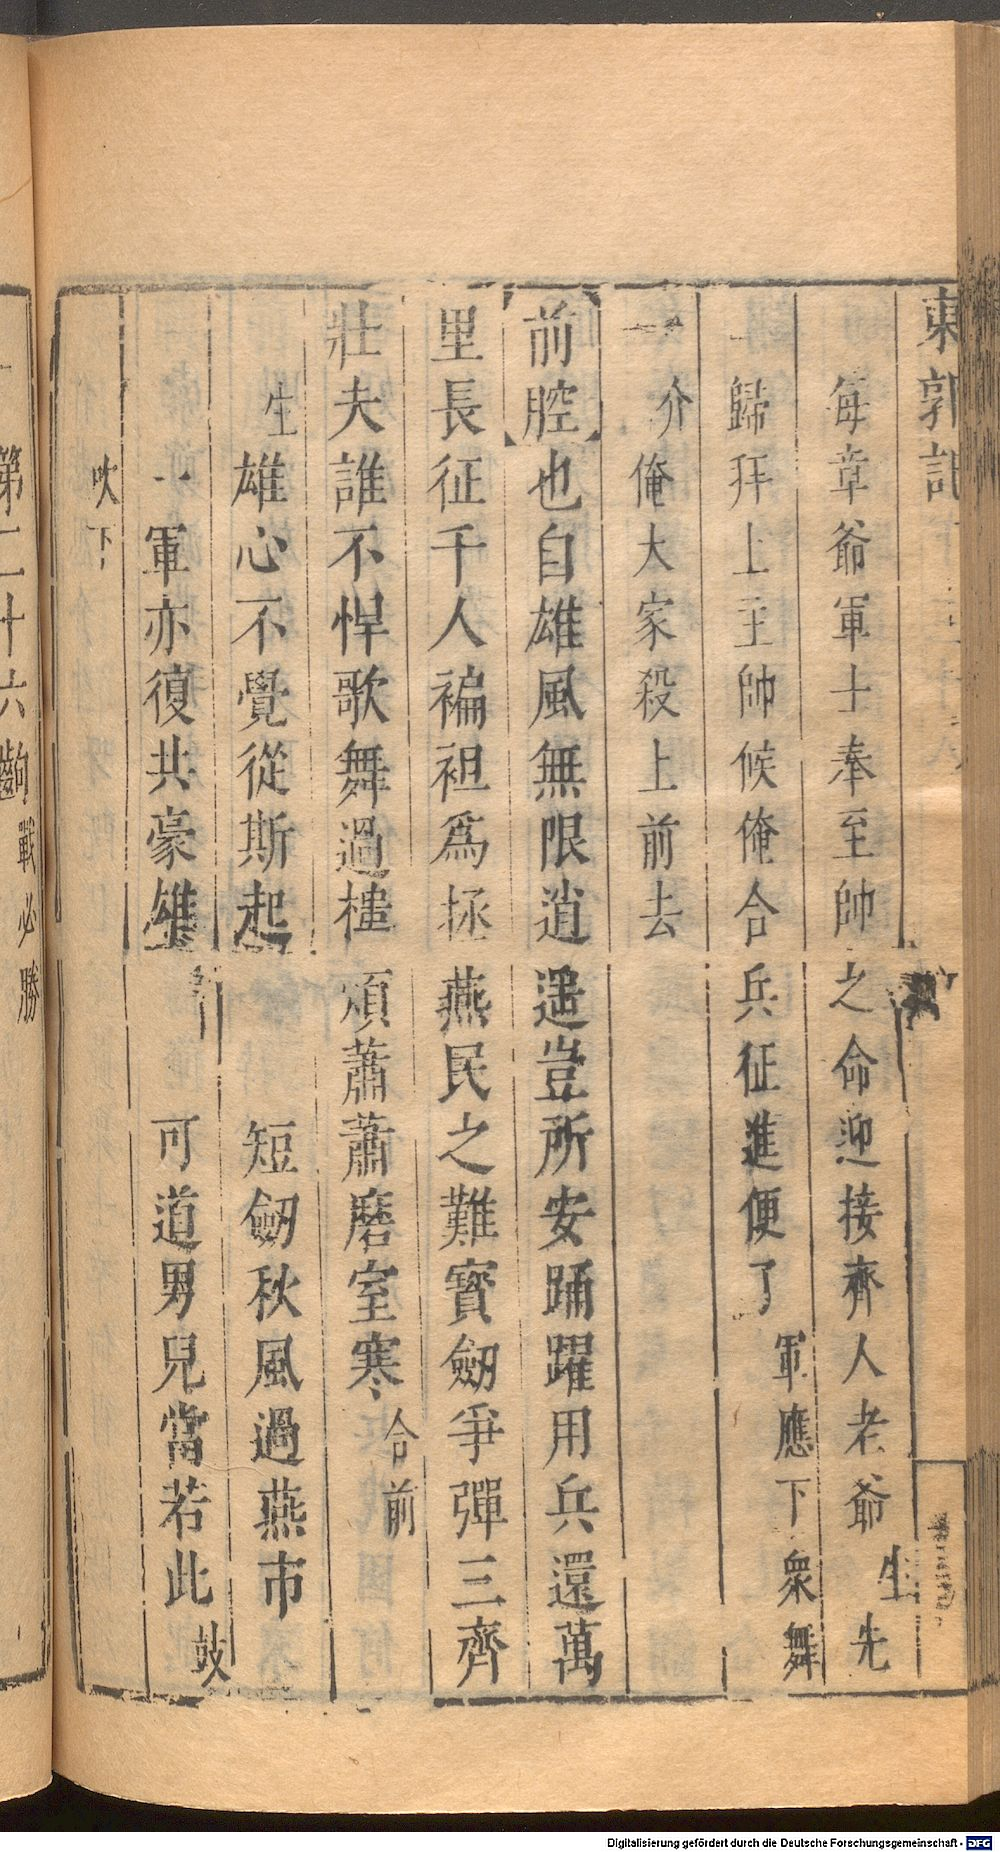 東郭記
每章爺軍士奉至帥之命迎接齊人老爺生先
歸拜上主帥候俺合兵征進便了軍應下衆舞
介俺大家殺上前去
前腔也自雄風無限逍遥豈所安踊躍用兵還萬
里長征千人褊袒爲拯燕民之難寳劒爭彈三齊
壯夫誰不悍歌舞過樓煩蕭蕭磨室寒合前
生雄心不覺從斯起 短劒秋風過燕市
一軍亦復共豪雄 可道男兒當若此鼓
吹下
第二十六齣戰必勝
Digitalisierung gefördert durch die Deutsche Forschungsgemeinschaft - DFG